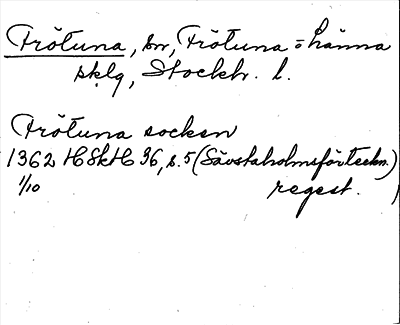 Frötuna, sn, Frötuna = Länna
sklg, Stockh. l.
Frötuna socken
1362 HSkH 36, s. 5 (Sävstaholmsförteckn.)
1/10 regest.